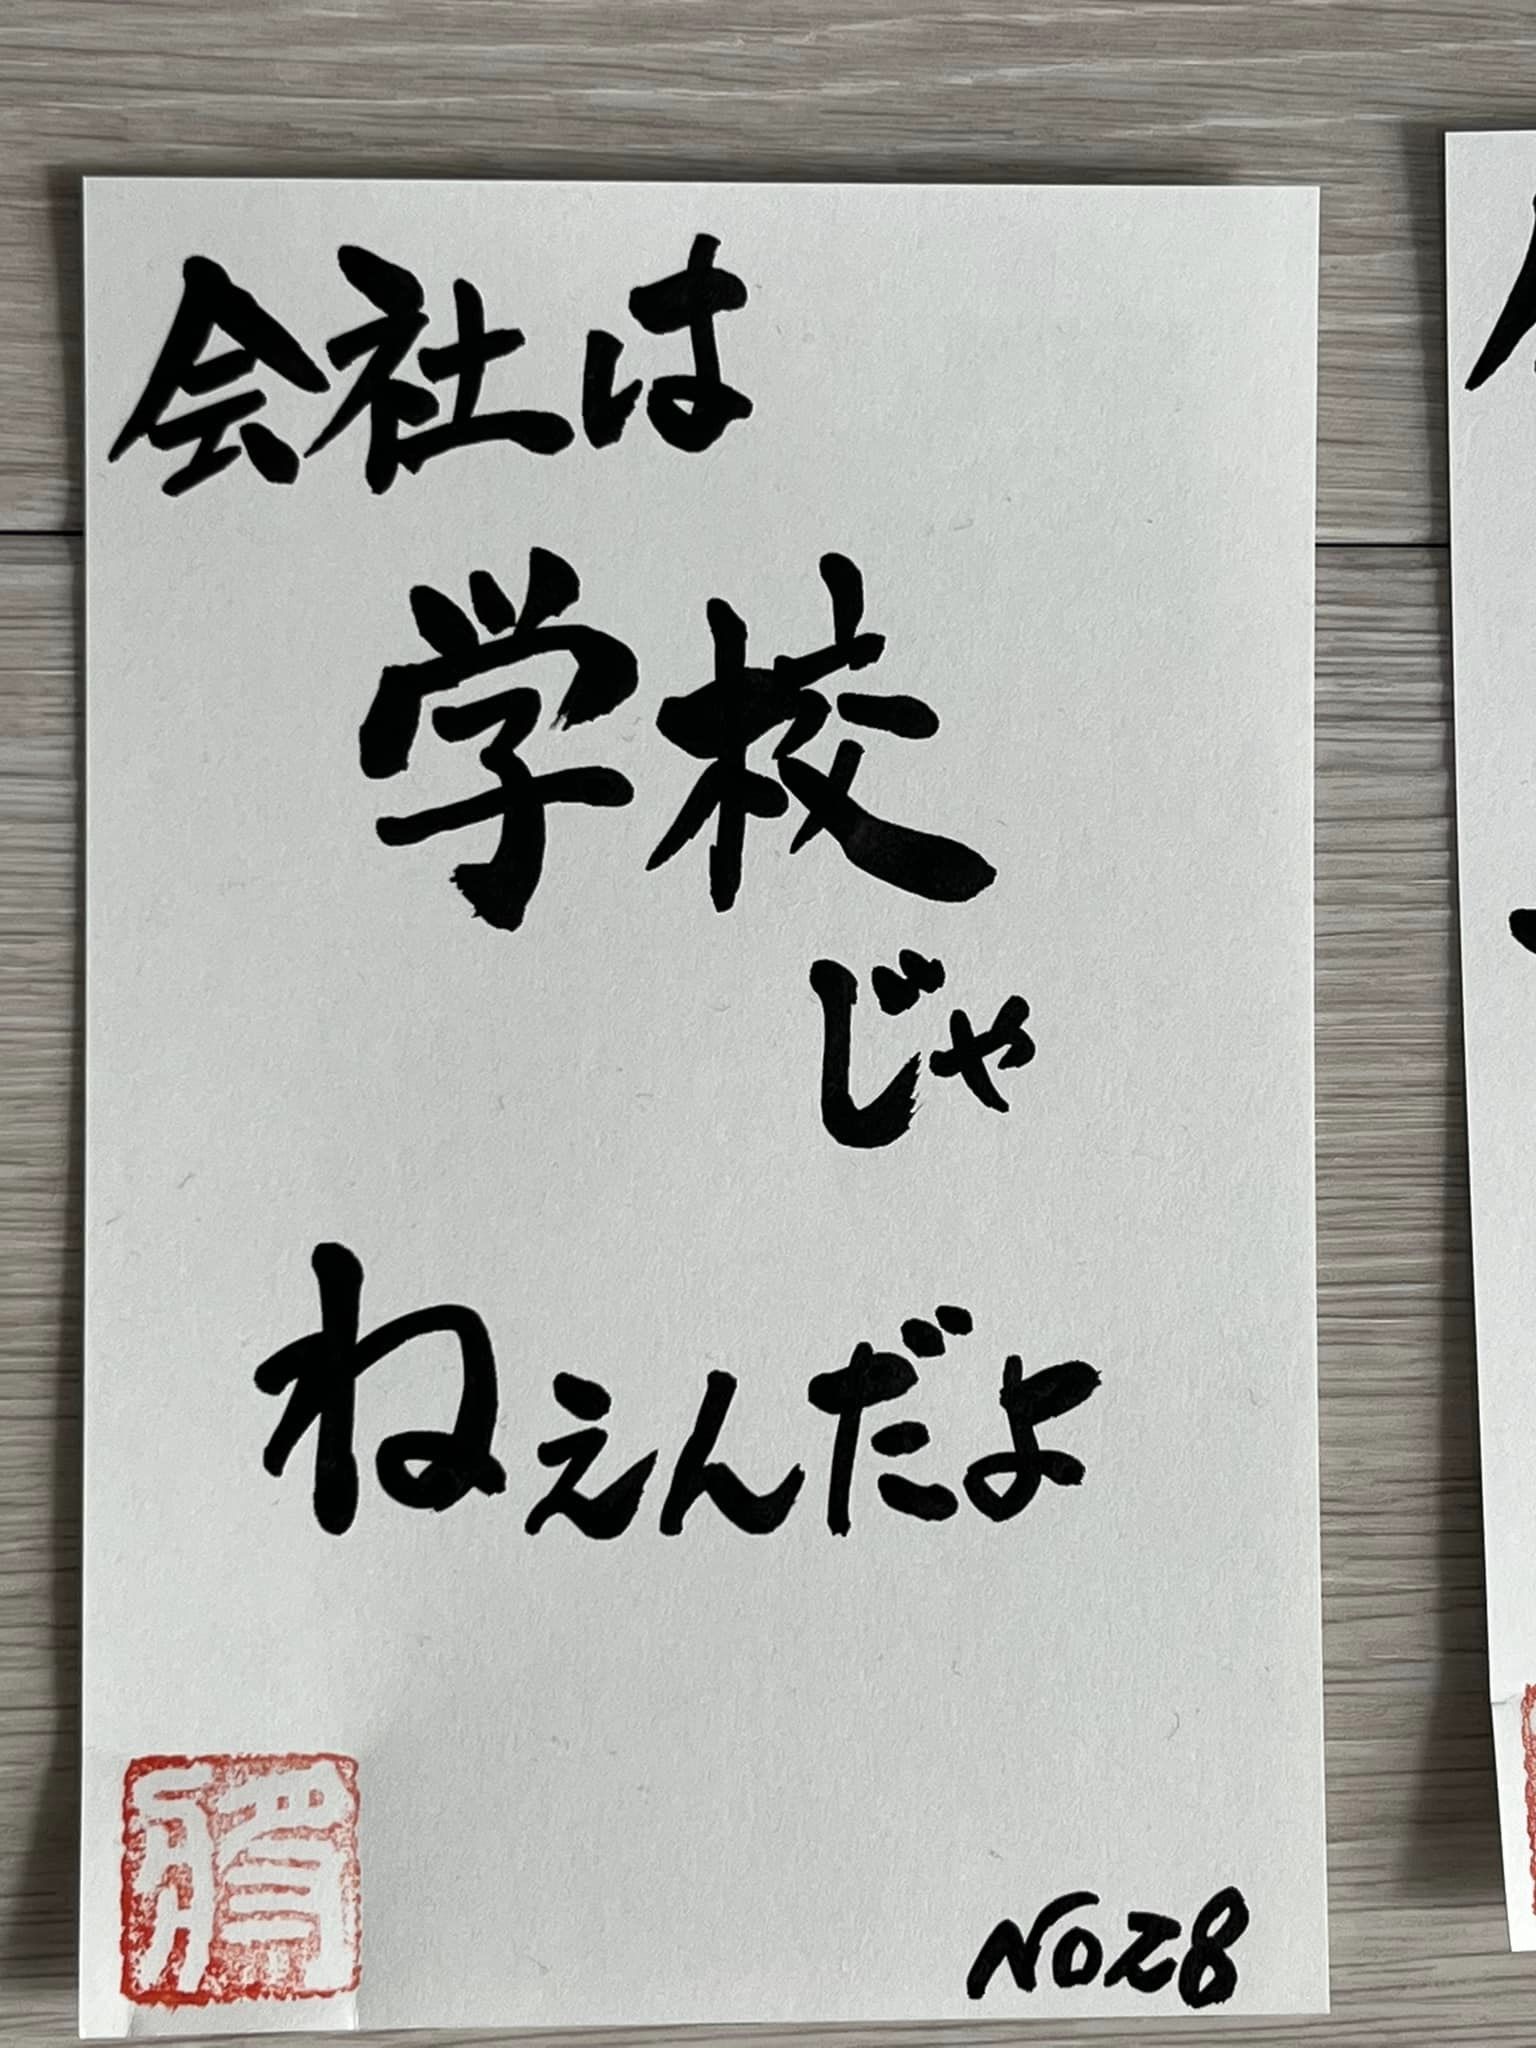 会社は
学校
じゃ
ねぇんだよ
No28